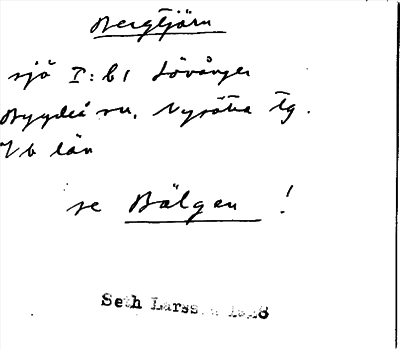 Bergtjärn
sjö I:b1 Lövånger
Bygdeå sn. Nysätra tg.
Vb län
se Bälgen !
Seth Larsson 1928